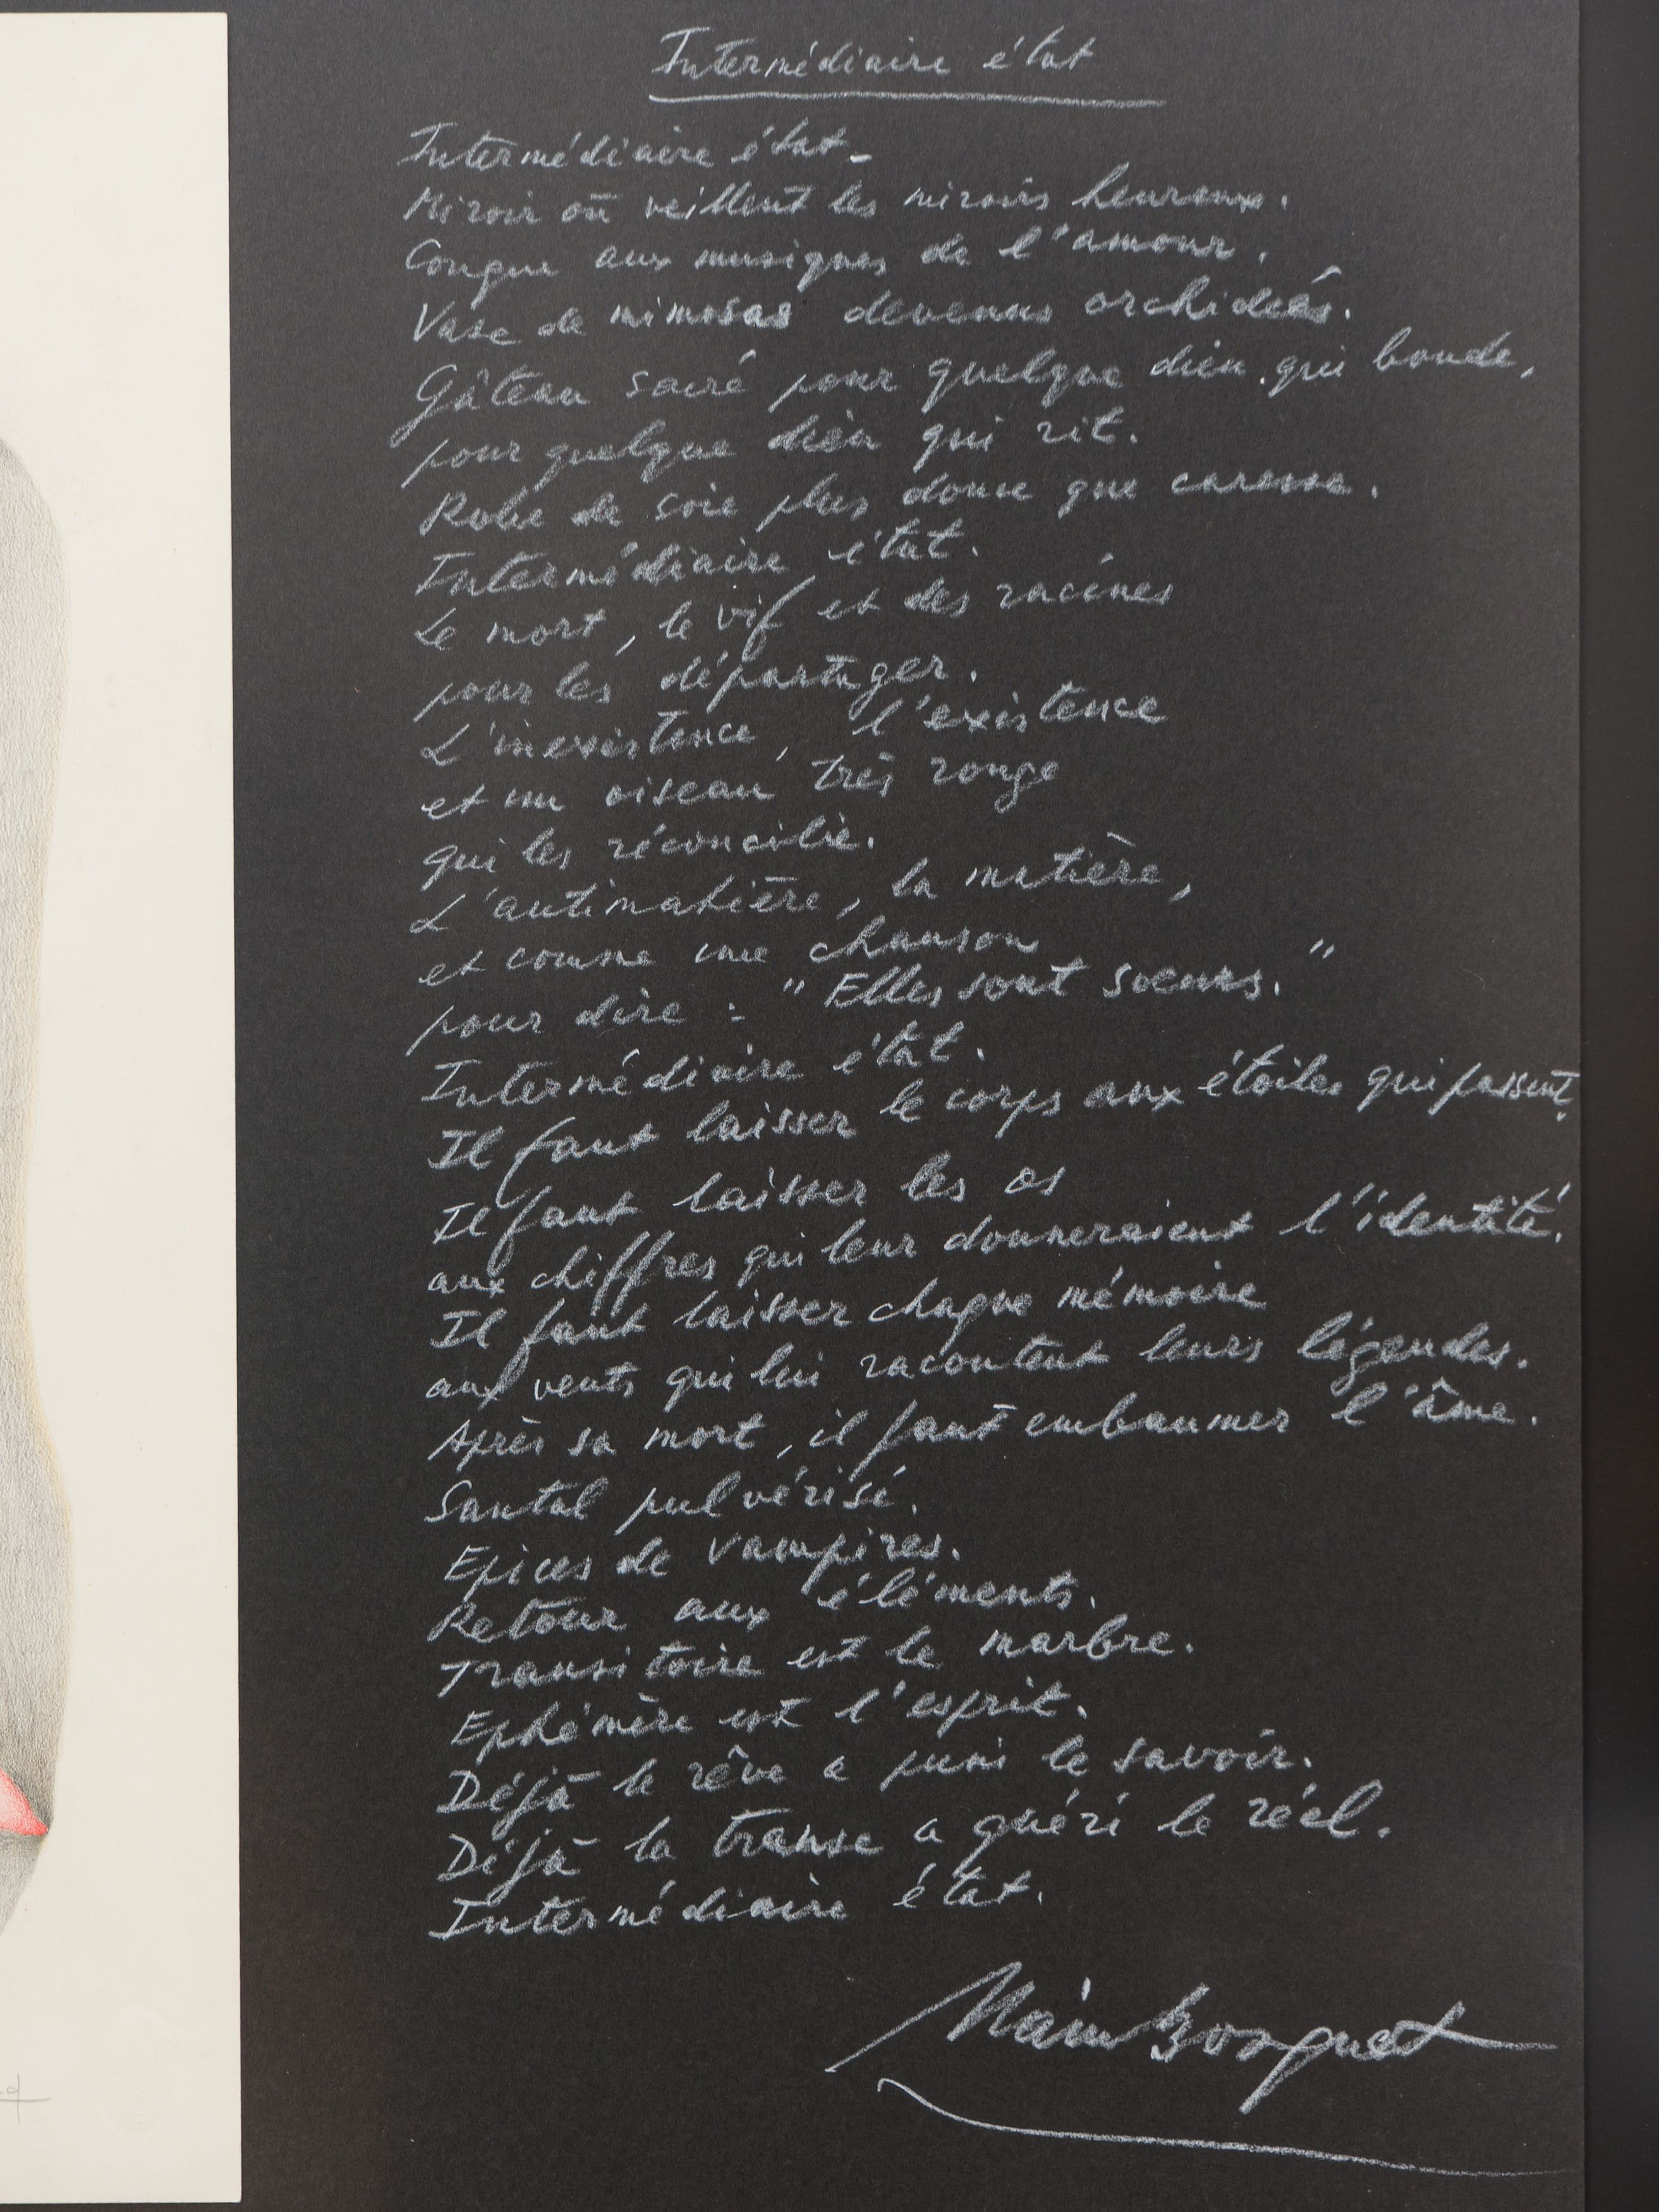 Intermédiaire état
Intermédiaire état.
Miroir où veillent les miroirs heureux.
Conque aux musiques de l'amour.
Vase de mimosas devenus orchidées.
Gâteau sacré pour quelque dieu qui boude,
pour quelque dieu qui rit.
Robe de soie plus douce que caresse.
Intermédiaire état.
Le mort, le vif et des racines
pour les départager.
L'inexistence, l'existence
et un oiseau très rouge
qui les réconcilie.
L'antimatière, la matière,
et comme une chanson
pour dire : "Elles sont soeurs."
Intermédiaire état.
Il faut laisser le corps aux étoiles qui passent.
Il faut laisser les os
aux chiffres qui leur donneraient l'identité.
Il faut laisser chaque mémoire
aux vents qui lui racontent leurs légendes.
Après sa mort, il faut embaumer l'âme.
Santal pulvérisé.
Epices de vampires.
Retour aux éléments.
Transitoire est le marbre.
Ephémère est l'esprit.
Déjà le rêve a puni le savoir.
Déjà la transe a guéri le réel.
Intermédiaire état.
Alain Bosquet